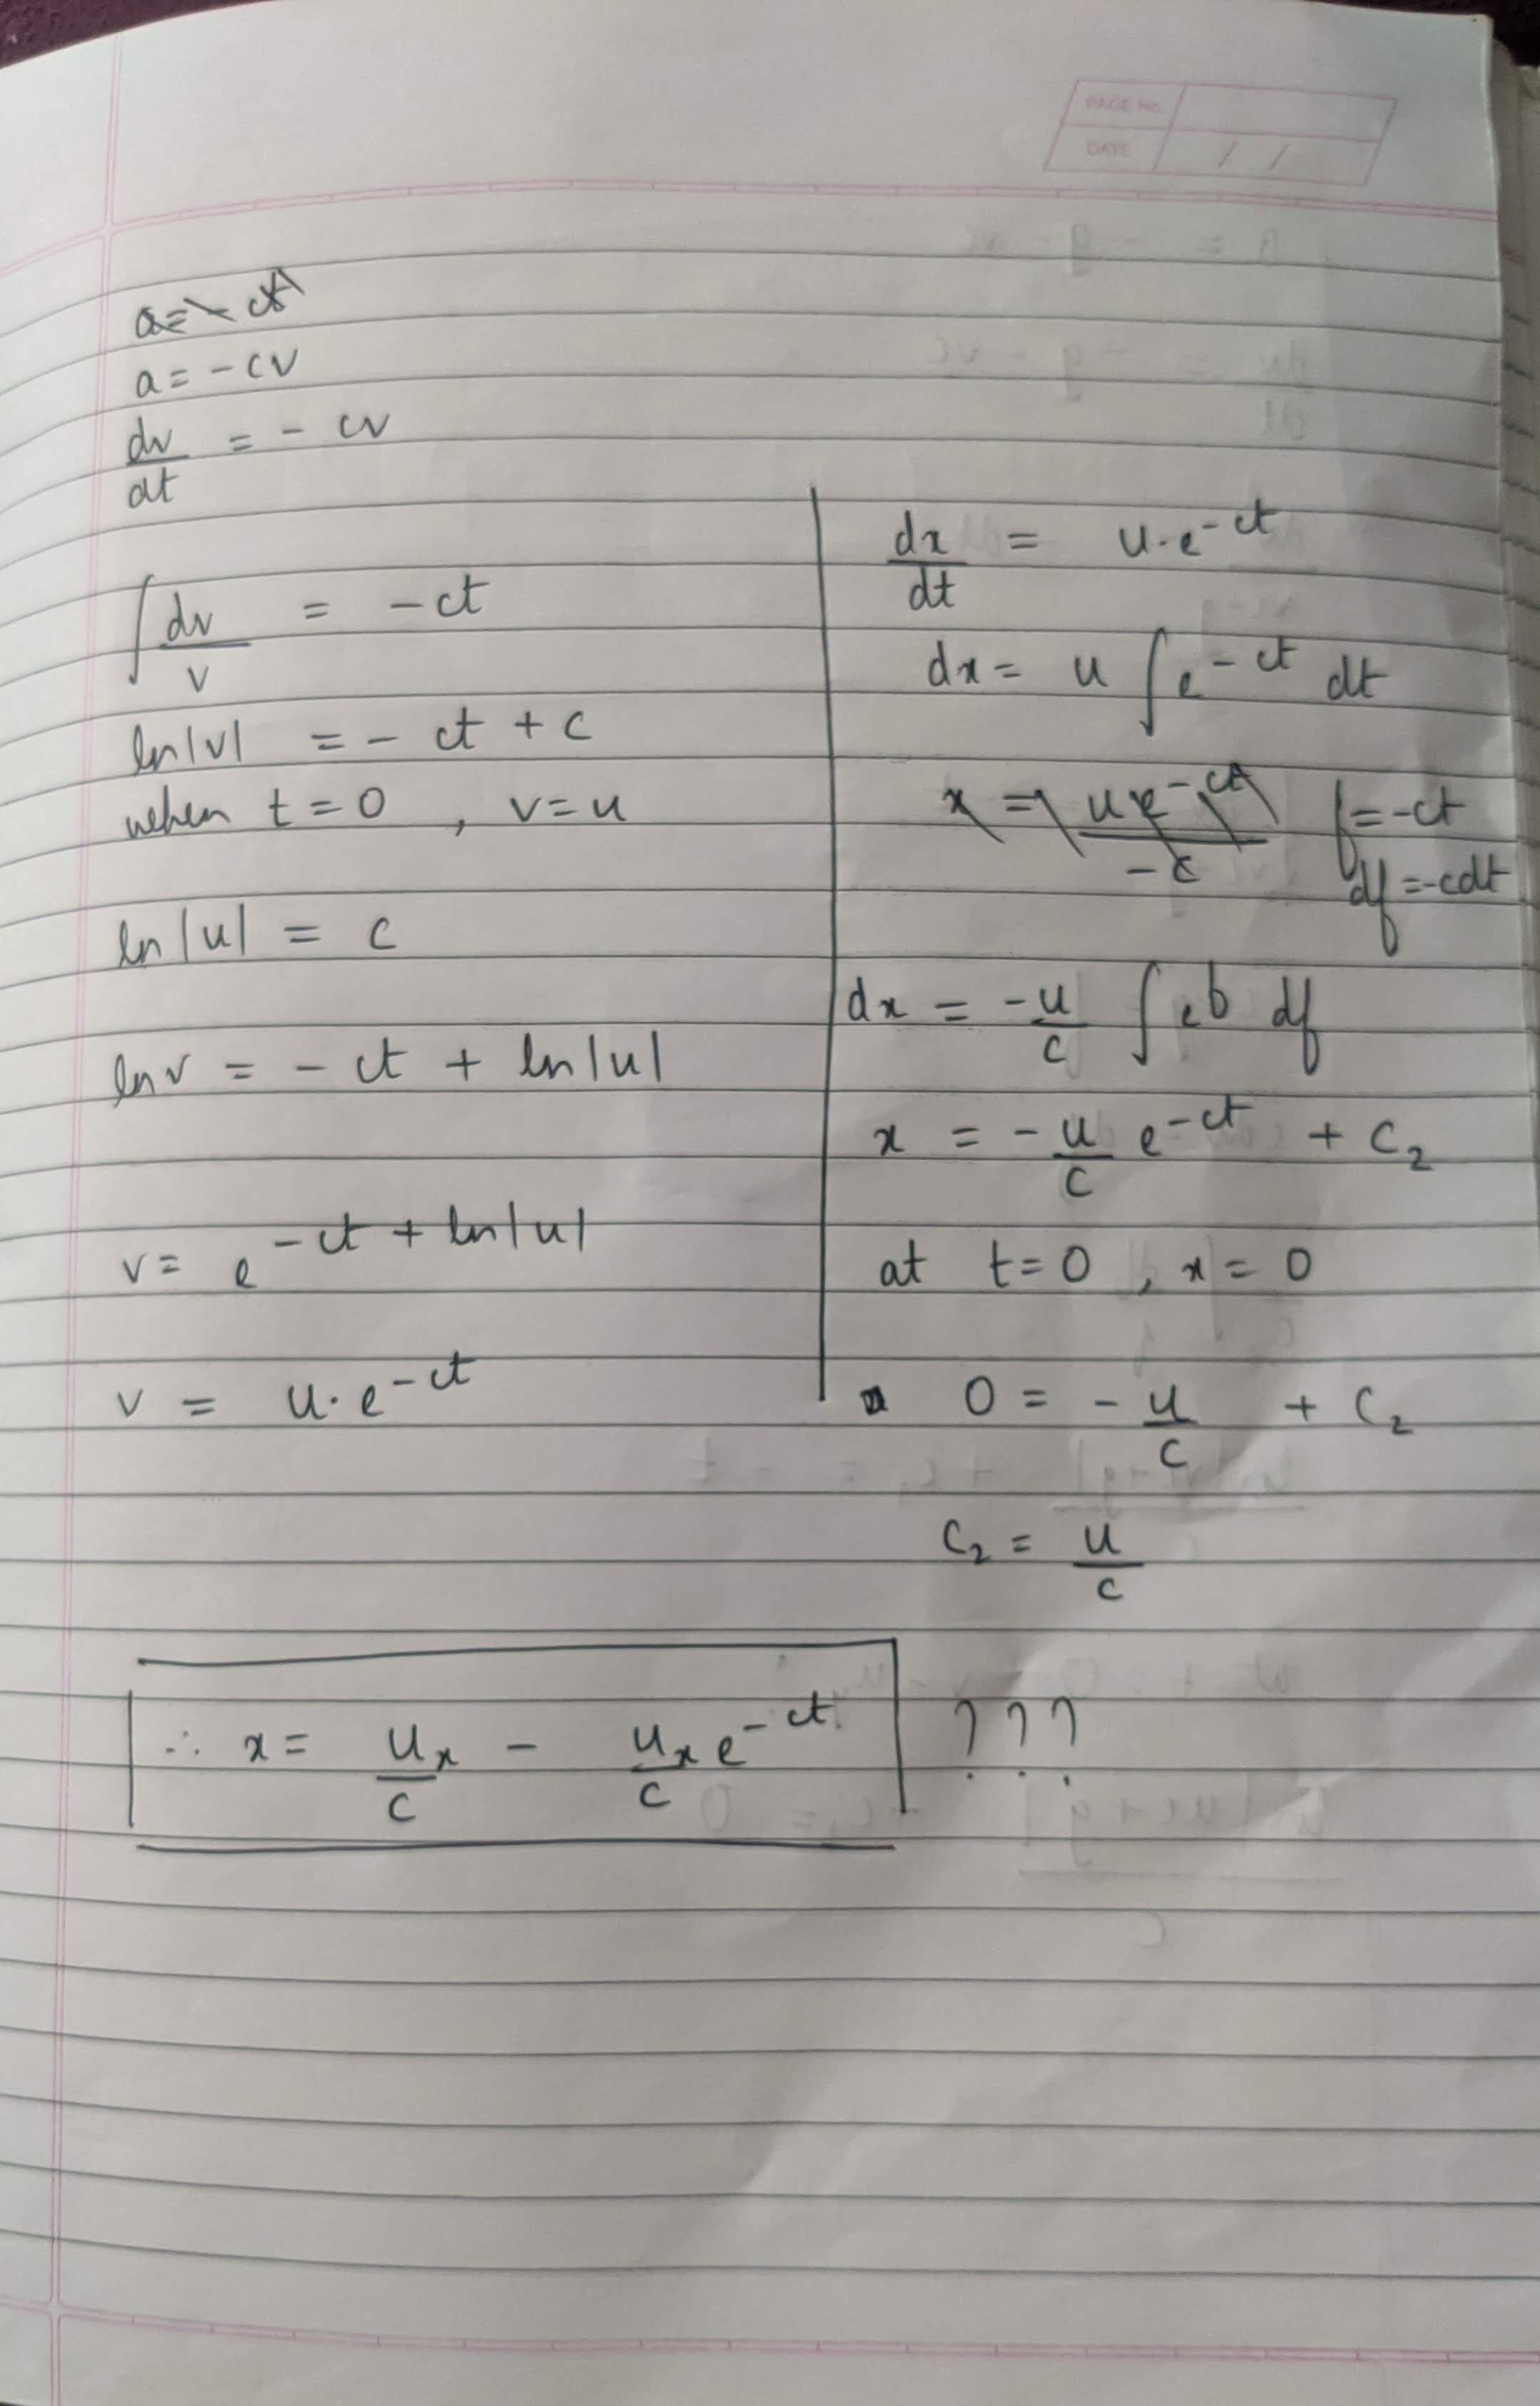 PAGE No.
DATE / /
a = - ct
a = - cv
dv/dt = - cv
∫ dv/v = - ct
ln|v| = - ct + c
when t = 0 , v = u
ln|u| = c
ln v = - ct + ln|u|
v = e^(- ct + ln|u|)
v = u · e^(- ct)
dx/dt = u · e^(- ct)
dx = u ∫ e^(- ct) dt
x = u e^(- ct) / - c
f = - ct
df = - cdt
dx = - u/c ∫ e^f df
x = - u/c e^(- ct) + c₂
at t = 0 , x = 0
0 = - u/c + c₂
c₂ = u/c
∴ x = uₓ/c - uₓ/c e^(- ct) ???